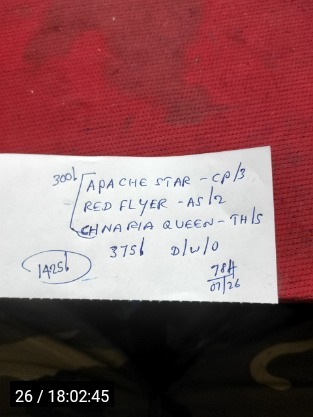 300/- APACHE STAR - CP/3
RED FLYER - AS/2
CHNARIA QUEEN - TH/5
375/- D/W/O
1425/-
784
07/26
26 / 18:02:45